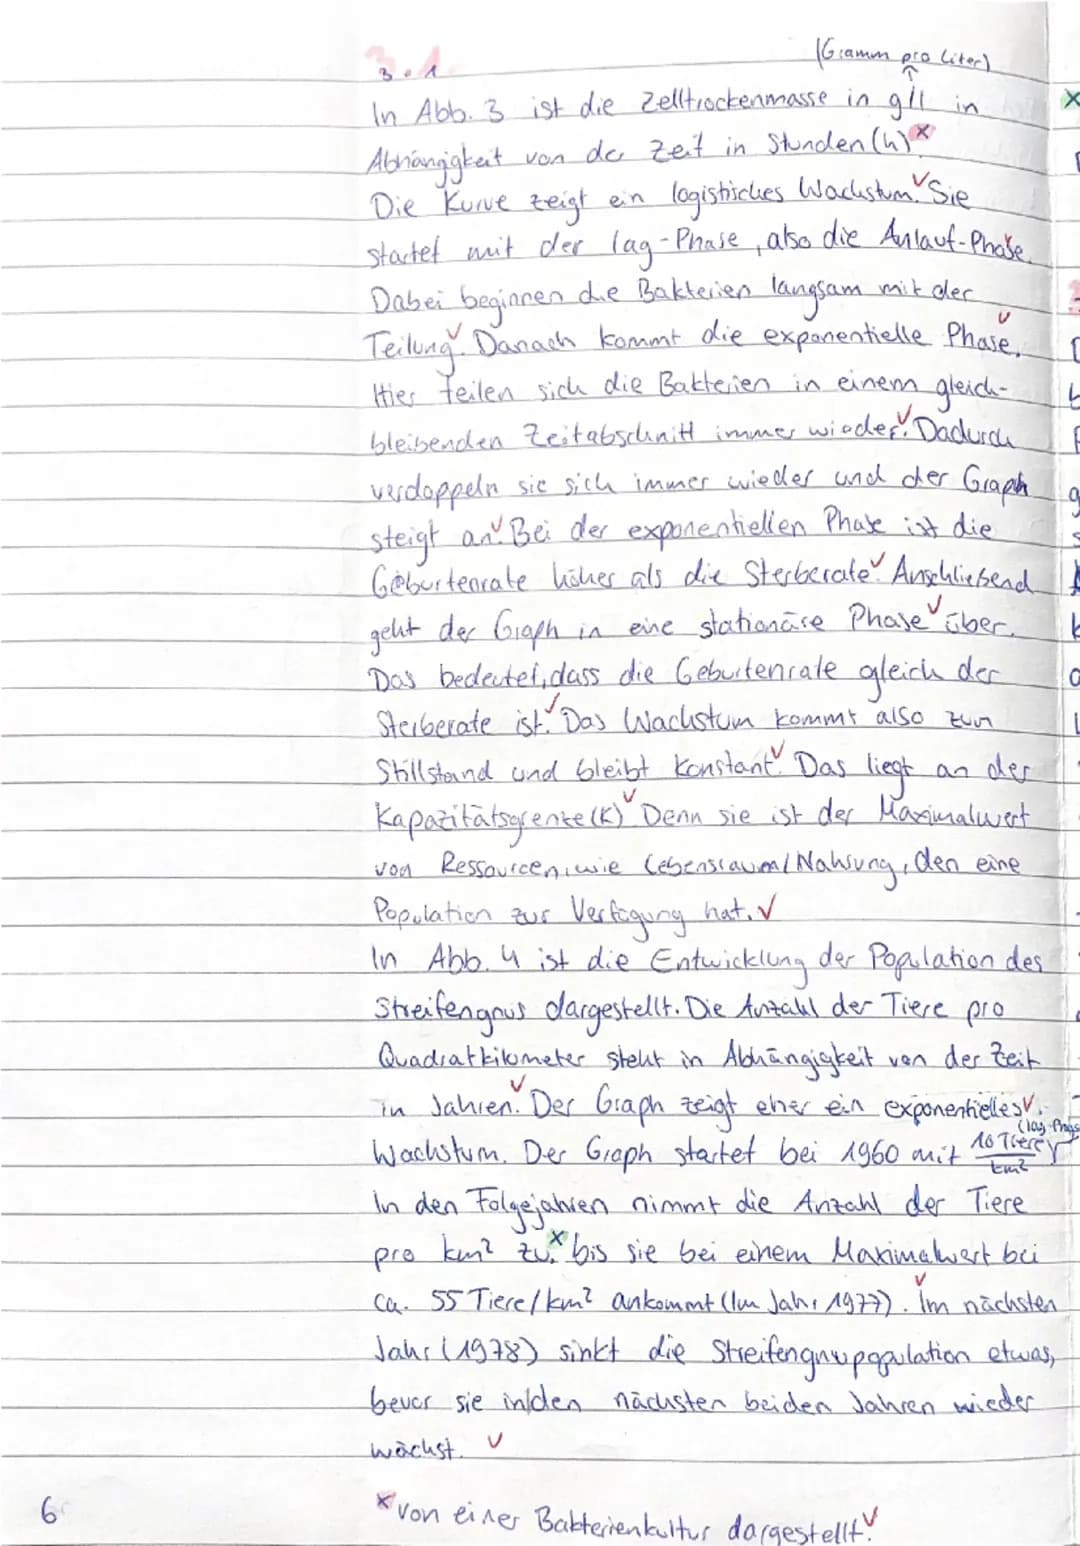 3.1
(Gramm pro Liter)
In Abb. 3 ist die Zelltrockenmasse in g/l in
Abhängigkeit von der Zeit in Stunden (h) x
Die Kurve zeigt ein logistisches Wachstum. Sie
startet mit der lag-Phase, also die Anlauf-Phase.
Dabei beginnen die Bakterien langsam mit der
Teilung. Danach kommt die exponentielle Phase.
Hier teilen sich die Bakterien in einem gleich-
bleibenden Zeitabschnitt immer wieder. Dadurch
verdoppeln sie sich immer wieder und der Graph
steigt an. Bei der exponentiellen Phase ist die
Geburtenrate höher als die Sterberate. Anschließend
geht der Graph in eine stationäre Phase über.
Das bedeutet, dass die Geburtenrate gleich der
Sterberate ist. Das Wachstum kommt also zum
Stillstand und bleibt konstant. Das liegt an der
Kapazitätsgrenze (K). Denn sie ist der Maximalwert
von Ressourcen, wie Lebensraum/Nahrung, den eine
Population zur Verfügung hat.
In Abb. 4 ist die Entwicklung der Population des
Streifengnus dargestellt. Die Anzahl der Tiere pro
Quadratkilometer steht in Abhängigkeit von der Zeit
in Jahren. Der Graph zeigt eher ein exponentielles
(lag-Phas
Wachstum. Der Graph startet bei 1960 mit 10 Tiere/km²
In den Folgejahren nimmt die Anzahl der Tiere
pro km² zu, x bis sie bei einem Maximalwert bei
ca. 55 Tiere/km² ankommt (Im Jahr 1977). Im nächsten
Jahr (1978) sinkt die Streifengnupopulation etwas,
bevor sie in den nächsten beiden Jahren wieder
wächst.
6
x von einer Bakterienkultur dargestellt.